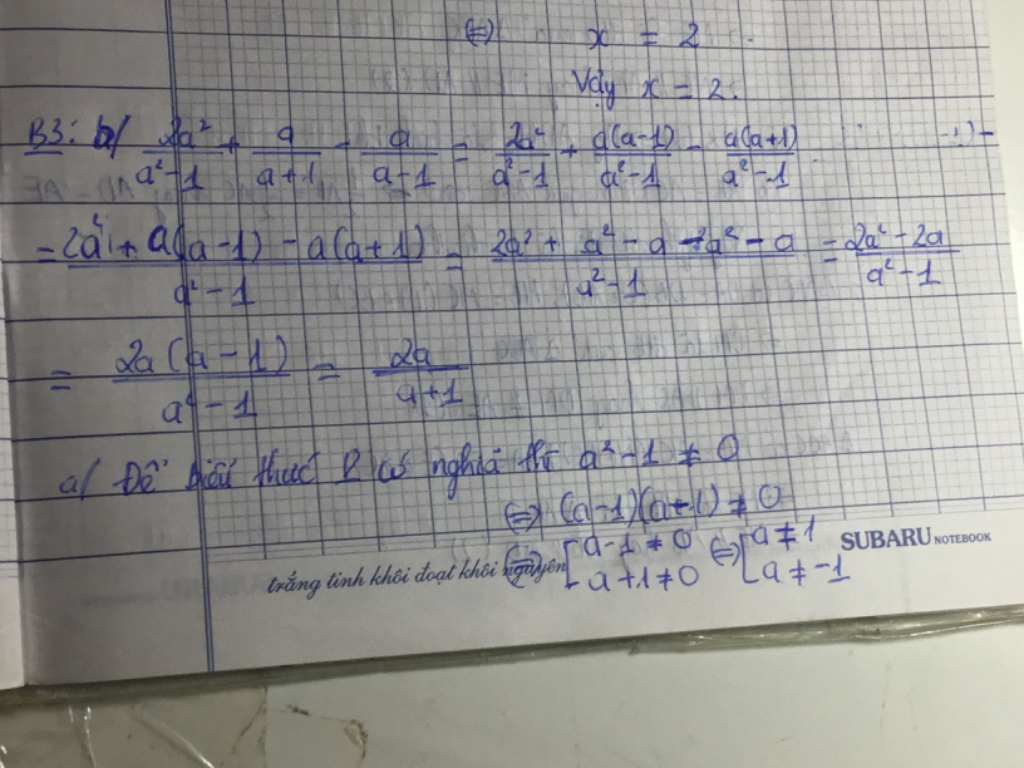 (=) x = 2.
Vậy x = 2.
B3: b/ 2a²/(a²-1) + a/(a+1) - a/(a-1) = 2a²/(a²-1) + a(a-1)/(a²-1) - a(a+1)/(a²-1)
= (2a² + a(a-1) - a(a+1))/(a²-1) = (2a² + a² - a - a² - a)/(a²-1) = (2a² - 2a)/(a²-1)
= 2a(a-1)/(a²-1) = 2a/(a+1)
a/ Để biểu thức P có nghĩa thì a²-1 ≠ 0
(=) (a-1)(a+1) ≠ 0
(=) [a-1 ≠ 0 (=) [a ≠ 1
a+1 ≠ 0 a ≠ -1
SUBARU NOTEBOOK
trắng tinh khôi đoạt khôi nguyên